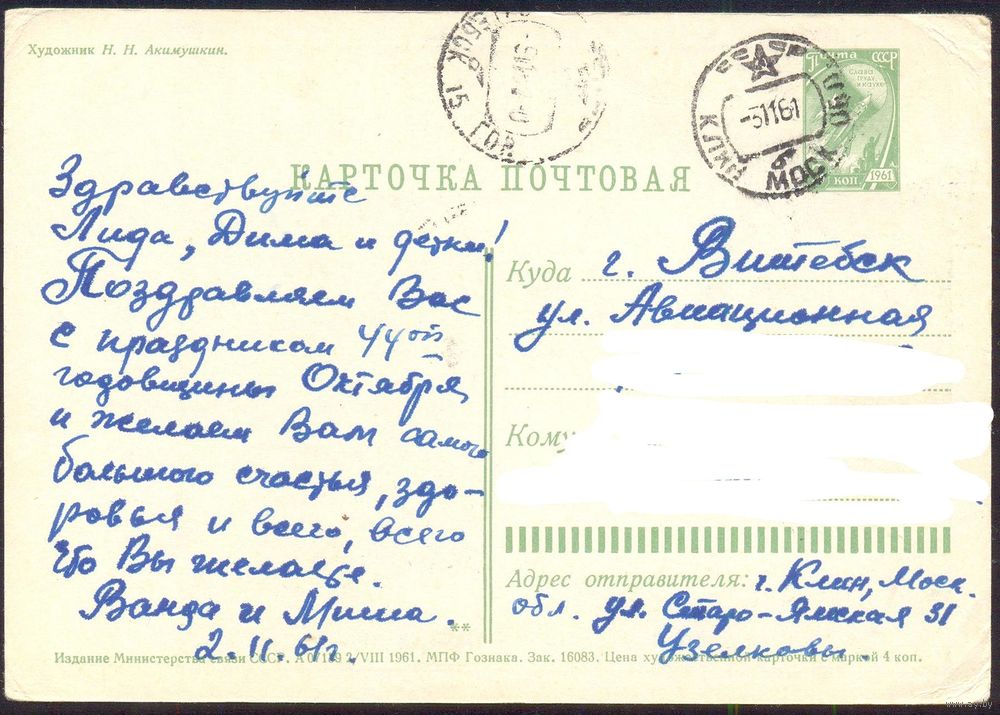 Художник Н. Н. Акимушкин.
Почта СССР
Слава труду и науке
КОП 1961
КЛИН МОСК
-51161
15 ГОР
КАРТОЧКА ПОЧТОВАЯ
Здравствуйте
Лида, Дима и детки!
Поздравляем Вас
с праздником 44ой
годовщины Октября
и желаем Вам самого
большого счастья, здо-
ровья и всего, всего
что Вы желаете.
Ванда и Миша.
2.II 61г.
Куда г. Витебск
ул. Авиационная
Кому
Адрес отправителя: г. Клин, Моск.
обл. ул. Старо-Ямская 31
Узелковы.
Издание Министерства связи СССР. 2/VIII 1961. МПФ Гознака. Зак. 16083. Цена художественной карточки с маркой 4 коп.
www.ay.by